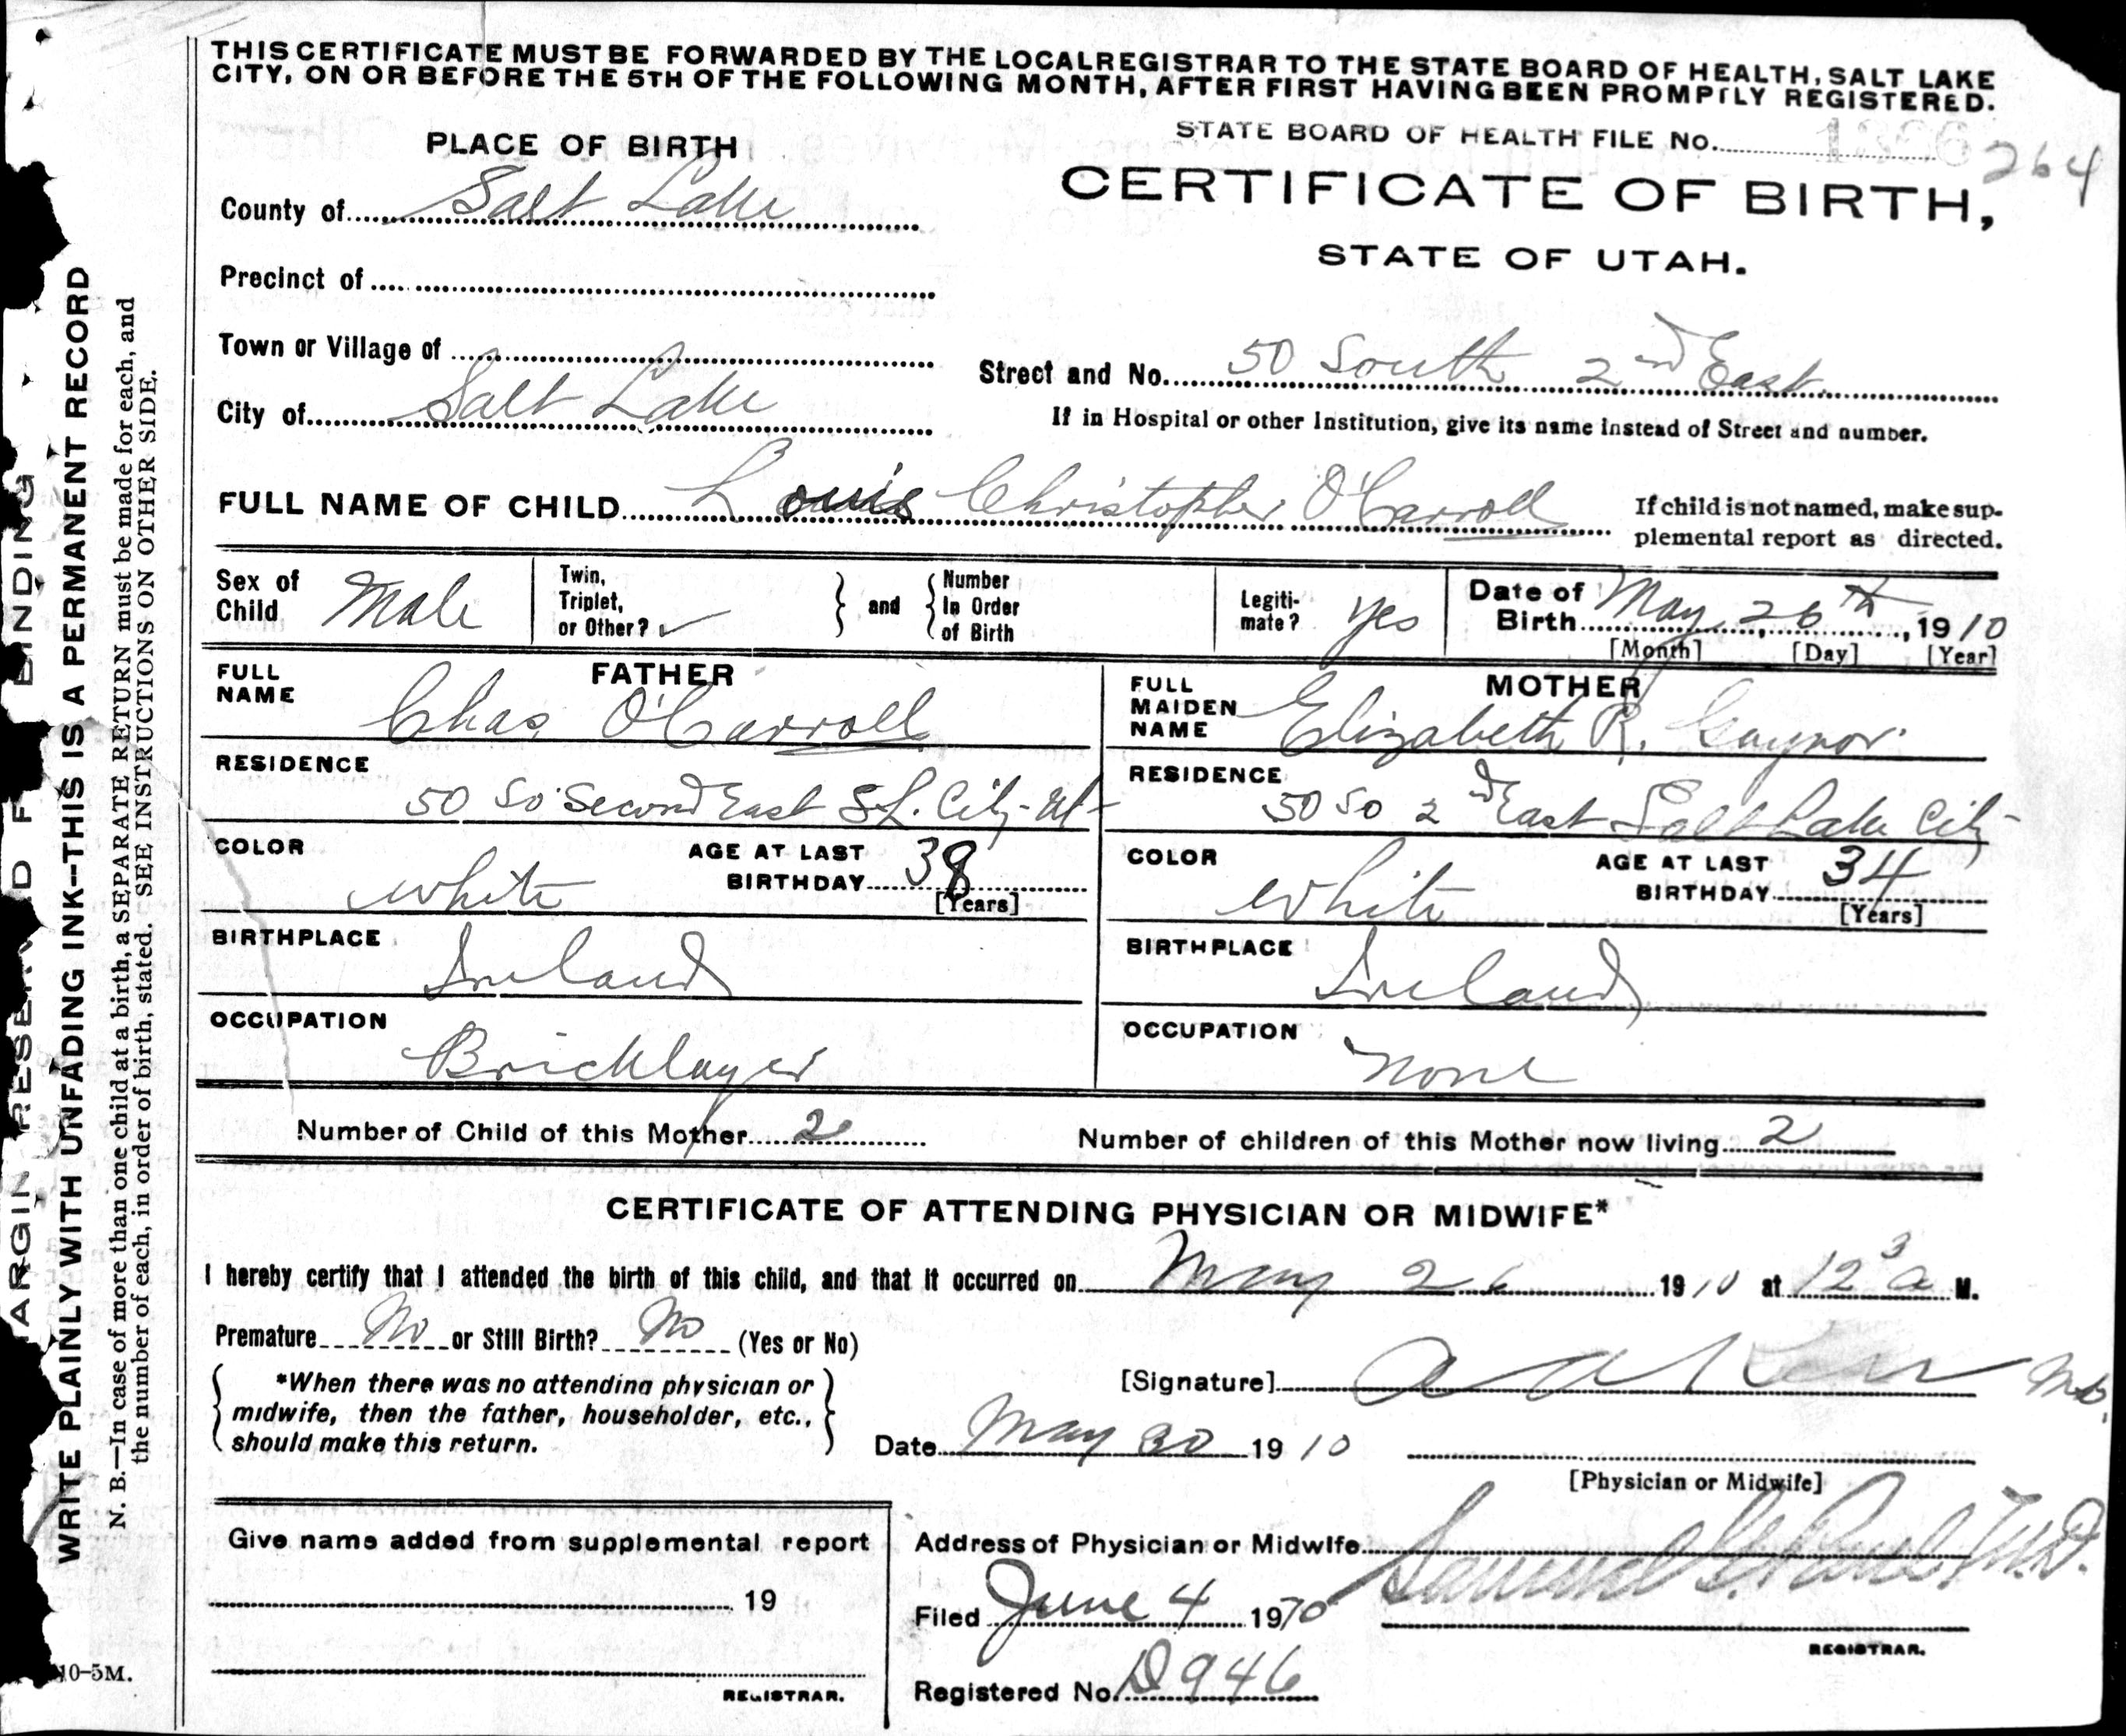 THIS CERTIFICATE MUST BE FORWARDED BY THE LOCAL REGISTRAR TO THE STATE BOARD OF HEALTH, SALT LAKE
CITY, ON OR BEFORE THE 5TH OF THE FOLLOWING MONTH, AFTER FIRST HAVING BEEN PROMPTLY REGISTERED.
STATE BOARD OF HEALTH FILE No.
264
PLACE OF BIRTH
CERTIFICATE OF BIRTH,
STATE OF UTAH.
County of Salt Lake
Precinct of
Town or Village of
Street and No. 50 South 2nd East
City of Salt Lake
If in Hospital or other Institution, give its name instead of Street and number.
FULL NAME OF CHILD Louis Christopher O'Carroll
If child is not named, make sup-
plemental report as directed.
Sex of Child Male
Twin, Triplet, or Other? ✓ and Number In Order of Birth
Legiti-mate? yes
Date of Birth May 26th, 1910
[Month] [Day] [Year]
FATHER
FULL NAME Chas O'Carroll
MOTHER
FULL MAIDEN NAME Elizabeth R. Gaynor
RESIDENCE 50 So Second East S.L. City-Ut-
RESIDENCE 50 So 2nd East Salt Lake City-
COLOR White AGE AT LAST BIRTHDAY 38 [Years]
COLOR White AGE AT LAST BIRTHDAY 34 [Years]
BIRTHPLACE Ireland
BIRTHPLACE Ireland
OCCUPATION Bricklayer
OCCUPATION None
Number of Child of this Mother 2
Number of children of this Mother now living 2
CERTIFICATE OF ATTENDING PHYSICIAN OR MIDWIFE*
I hereby certify that I attended the birth of this child, and that it occurred on May 26 1910 at 12 3 a M.
Premature No or Still Birth? No (Yes or No)
*When there was no attending physician or
midwife, then the father, householder, etc.,
should make this return.
[Signature] MD.
Date May 30 1910
[Physician or Midwife]
Give name added from supplemental report
19
REGISTRAR.
Address of Physician or Midwife
Samuel G. Paul, M.D.
Filed June 4 1910
REGISTRAR.
Registered No. D946
WRITE PLAINLY WITH UNFADING INK--THIS IS A PERMANENT RECORD
N. B.—In case of more than one child at a birth, a SEPARATE RETURN must be made for each, and
the number of each, in order of birth, stated. SEE INSTRUCTIONS ON OTHER SIDE.
10-5M.